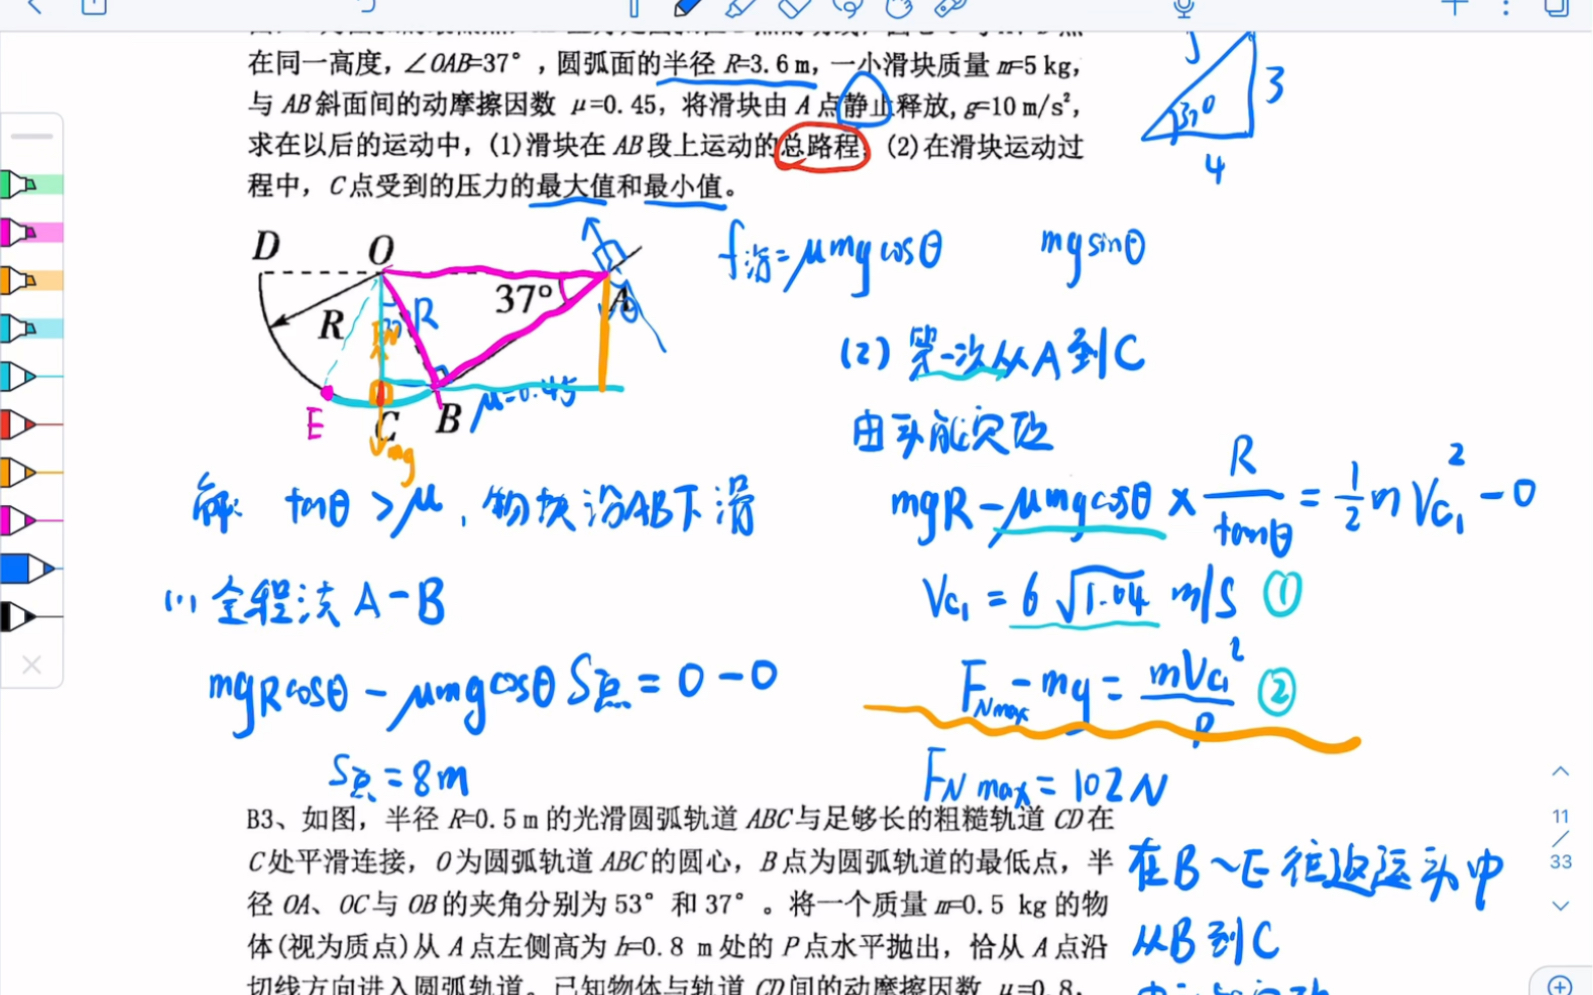 在同一高度，∠OAB=37°，圆弧面的半径 R=3.6 m，一小滑块质量 m=5 kg，
与 AB 斜面间的动摩擦因数 μ=0.45，将滑块由 A 点静止释放，g=10 m/s²，
求在以后的运动中，(1)滑块在 AB 段上运动的总路程；(2)在滑块运动过
程中，C 点受到的压力的最大值和最小值。
37°
3
4
D
O
R
R
37°
A
θ
E
C
B
μ=0.45
mg
f滑=μmgcosθ
mgsinθ
(2) 第一次从A到C
由动能定理
mgR-μmgcosθ×R/tanθ=1/2mVc₁²-0
Vc₁=6√1.04 m/s ①
FNmax-mg=mVc₁²/R ②
FNmax=102N
解: tanθ>μ, 物块沿AB下滑
(1) 全程法 A-B
mgRcosθ-μmgcosθS总=0-0
S总=8m
B3、如图，半径 R=0.5 m 的光滑圆弧轨道 ABC 与足够长的粗糙轨道 CD 在
C 处平滑连接，O 为圆弧轨道 ABC 的圆心，B 点为圆弧轨道的最低点，半
径 OA、OC 与 OB 的夹角分别为 53° 和 37° 。将一个质量 m=0.5 kg 的物
体(视为质点)从 A 点左侧高为 h=0.8 m 处的 P 点水平抛出，恰从 A 点沿
切线方向进入圆弧轨道。已知物体与轨道 CD 间的动摩擦因数 μ=0.8，
在B~E往返运动中
从B到C
11
/
33